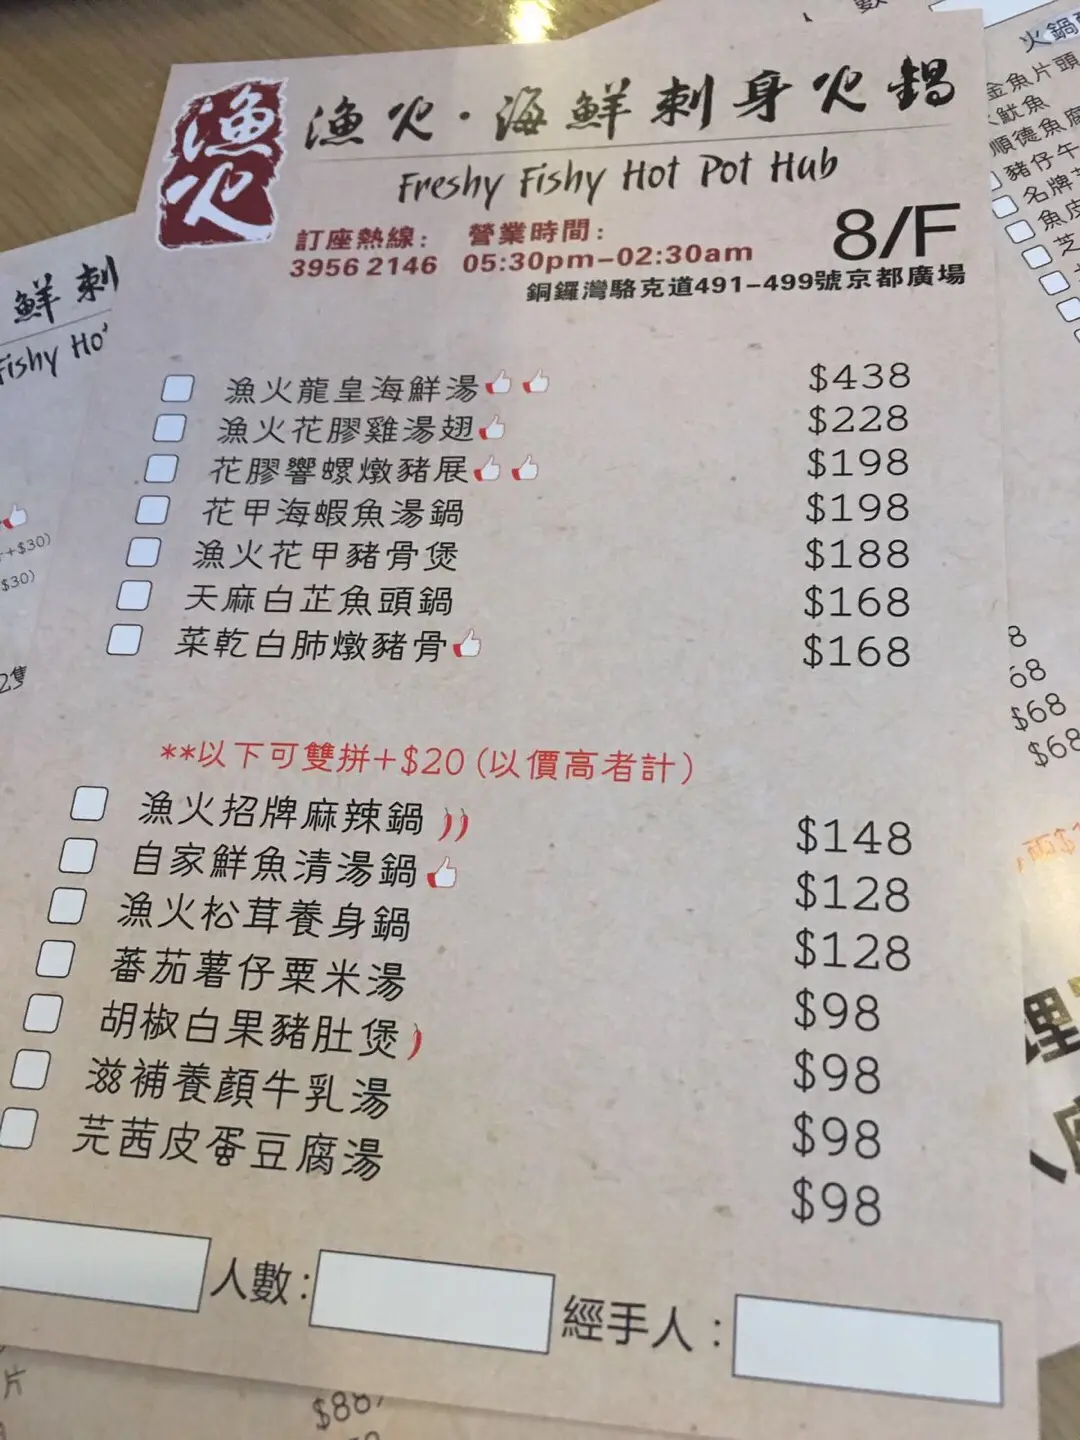 漁火
漁火·海鮮刺身火鍋
Freshy Fishy Hot Pot Hub
訂座熱線： 營業時間：
3956 2146 05:30pm-02:30am
8/F
銅鑼灣駱克道491-499號京都廣場
漁火龍皇海鮮湯 $438
漁火花膠雞湯翅 $228
花膠響螺燉豬展 $198
花甲海蝦魚湯鍋 $198
漁火花甲豬骨煲 $188
天麻白芷魚頭鍋 $168
菜乾白肺燉豬骨 $168
**以下可雙拼+$20(以價高者計)
漁火招牌麻辣鍋 $148
自家鮮魚清湯鍋 $128
漁火松茸養身鍋 $128
蕃茄薯仔粟米湯 $98
胡椒白果豬肚煲 $98
滋補養顏牛乳湯 $98
芫茜皮蛋豆腐湯 $98
人數： 經手人：
鮮刺
Fishy Ho
+$30)
$30)
2隻
片
$88
數
火鍋
金魚片頭
魷魚
順德魚腐
豬仔午
名牌
魚皮
芝
8
68
$68
$68
理